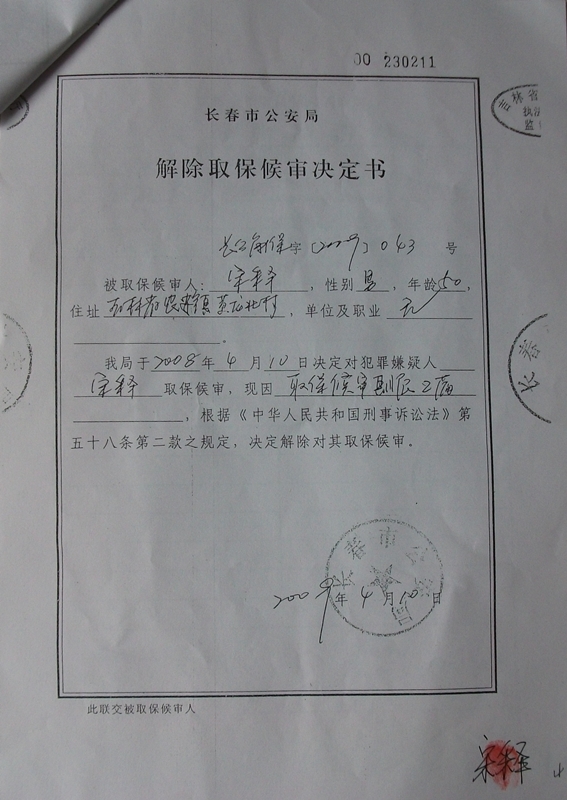 00 230211
吉林省
长春市公安局
解除取保候审决定书
字〔2009〕043 号
被取保候审人：宋释，性别男，年龄50，
住址，单位及职业无
。
我局于2008年4月10日决定对犯罪嫌疑人
宋释取保候审，现因取保候审期限已届
，根据《中华人民共和国刑事诉讼法》第
五十八条第二款之规定，决定解除对其取保候审。
长春市公安局
2009年4月10日
此联交被取保候审人
宋释